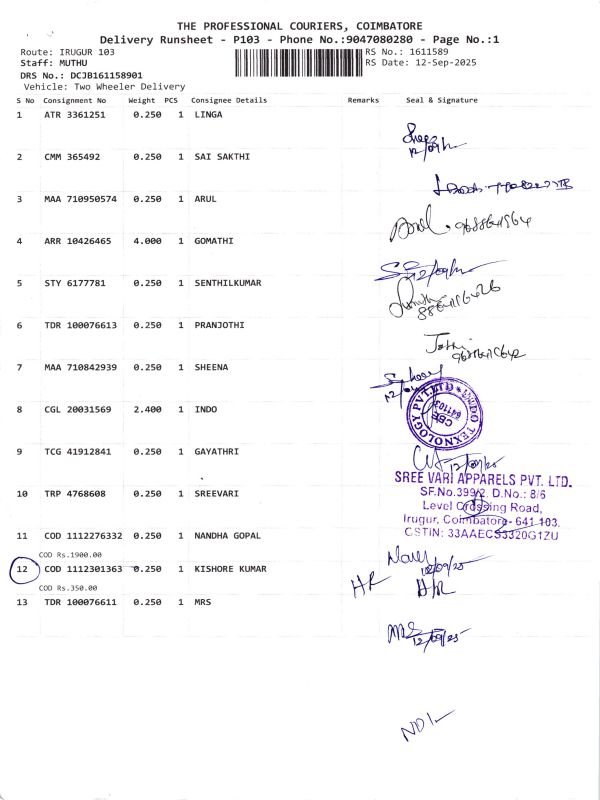 THE PROFESSIONAL COURIERS, COIMBATORE
Delivery Runsheet - P103 - Phone No.:9047080280 - Page No.:1
Route: IRUGUR 103 RS No.: 1611589
Staff: MUTHU RS Date: 12-Sep-2025
DRS No.: DCJB161158901
Vehicle: Two Wheeler Delivery
S No Consignment No Weight PCS Consignee Details Remarks Seal & Signature
1 ATR 3361251 0.250 1 LINGA
12/09/
2 CMM 365492 0.250 1 SAI SAKTHI
3 MAA 710950574 0.250 1 ARUL
4 ARR 10426465 4.000 1 GOMATHI
12/09/
5 STY 6177781 0.250 1 SENTHILKUMAR
6 TDR 100076613 0.250 1 PRANJOTHI
7 MAA 710842939 0.250 1 SHEENA
8 CGL 20031569 2.400 1 INDO
INDO TEXNOLOGY PVT.LTD
CBE
641103
9 TCG 41912841 0.250 1 GAYATHRI
12/09/25
SREE VARI APPARELS PVT. LTD.
10 TRP 4768608 0.250 1 SREEVARI
SF.No.399/2, D.No.: 8/6
Level Crossing Road,
Irugur, Coimbatore- 641 103.
11 COD 1112276332 0.250 1 NANDHA GOPAL
COD Rs.1900.00
12/09/25
12 COD 1112301363 0.250 1 KISHORE KUMAR
COD Rs.350.00
13 TDR 100076611 0.250 1 MRS
MRS
12/09/25